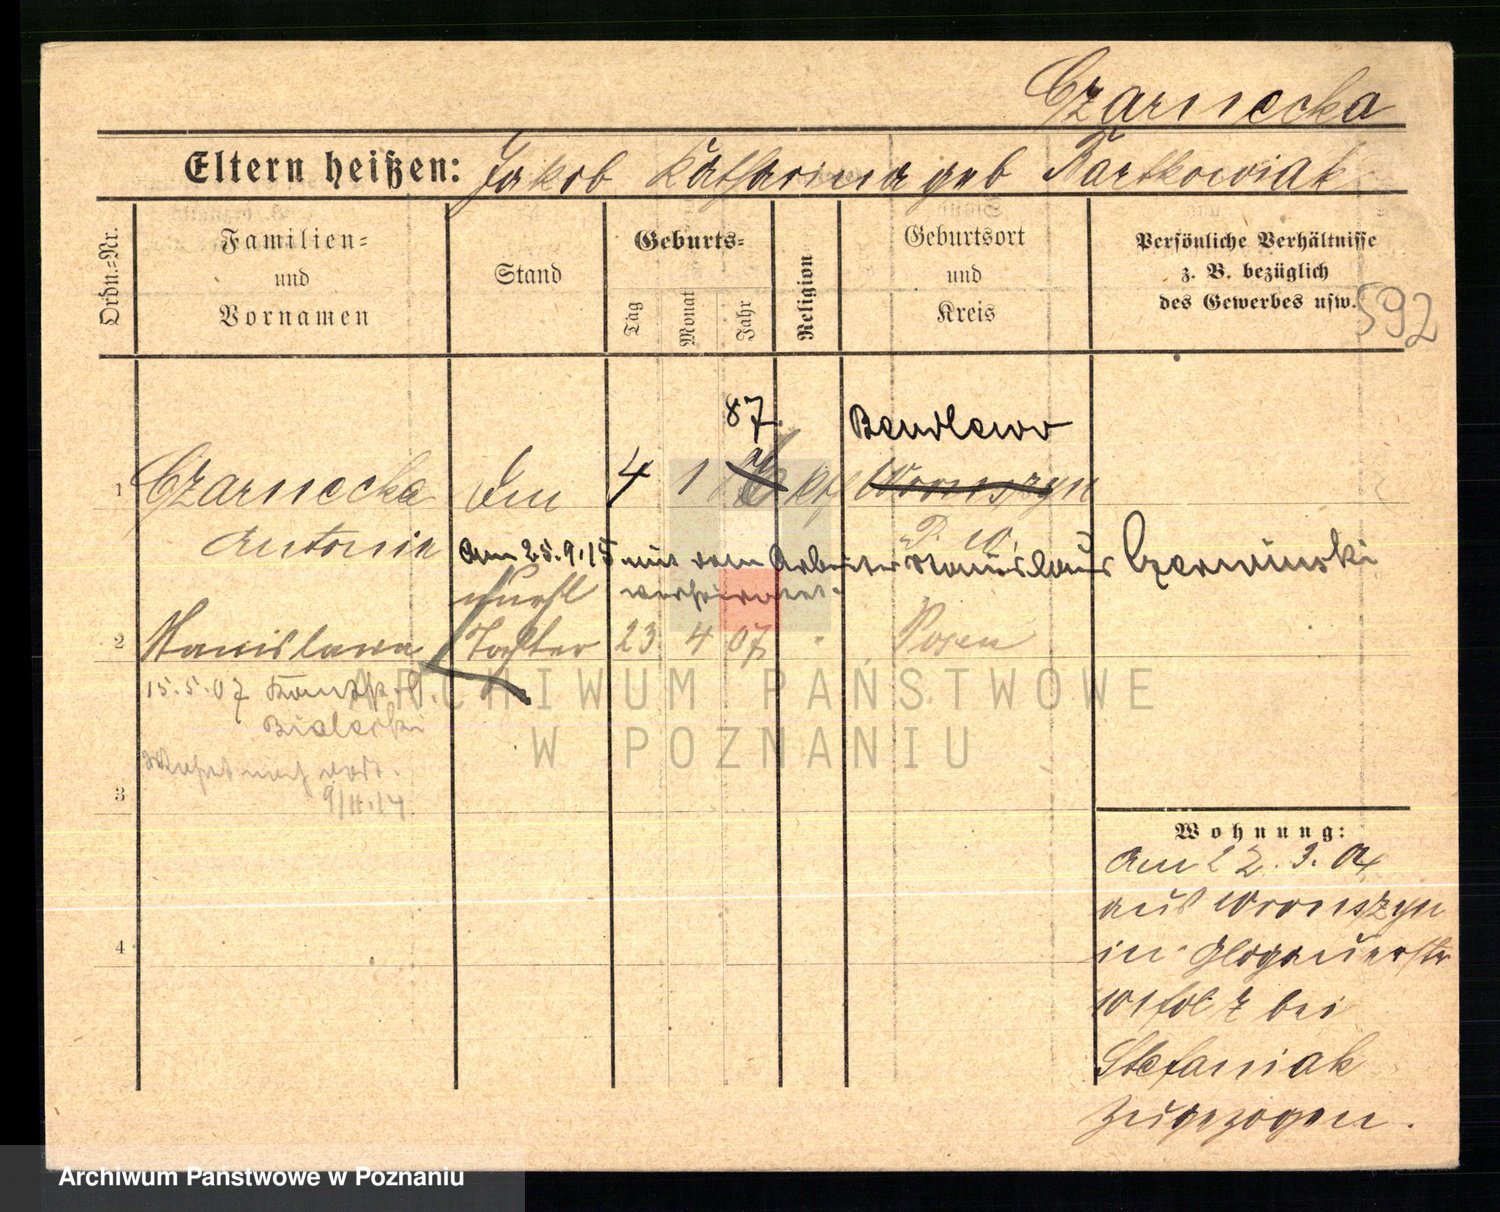 Czarnecka
Eltern heißen: Jakob Katharina geb Bartkowiak
Ordn.-Nr.
Familien-
und
Vornamen
Stand
Geburts-
Tag
Monat
Jahr
Religion
Geburtsort
und
Kreis
Persönliche Verhältnisse
z. B. bezüglich
des Gewerbes usw.
592
87. Bendlewo
1 Czarnecka 4 1 kth Wronszyn
Antonie P. W.
am 25.9.15 mit dem Arbeiter Stanislaus Czerwinski
verheiratet.
unehl
2 Stanislawa Tochter 23 4 07 " Posen
15.5.07
Bialecki
9/11.14
3
4
Wohnung:
Am 22.3.04
aus Wronszyn
in Glogauerstr
101 bei
Stefaniak
zugezogen.
ARCHIWUM PAŃSTWOWE
W POZNANIU
Archiwum Państwowe w Poznaniu